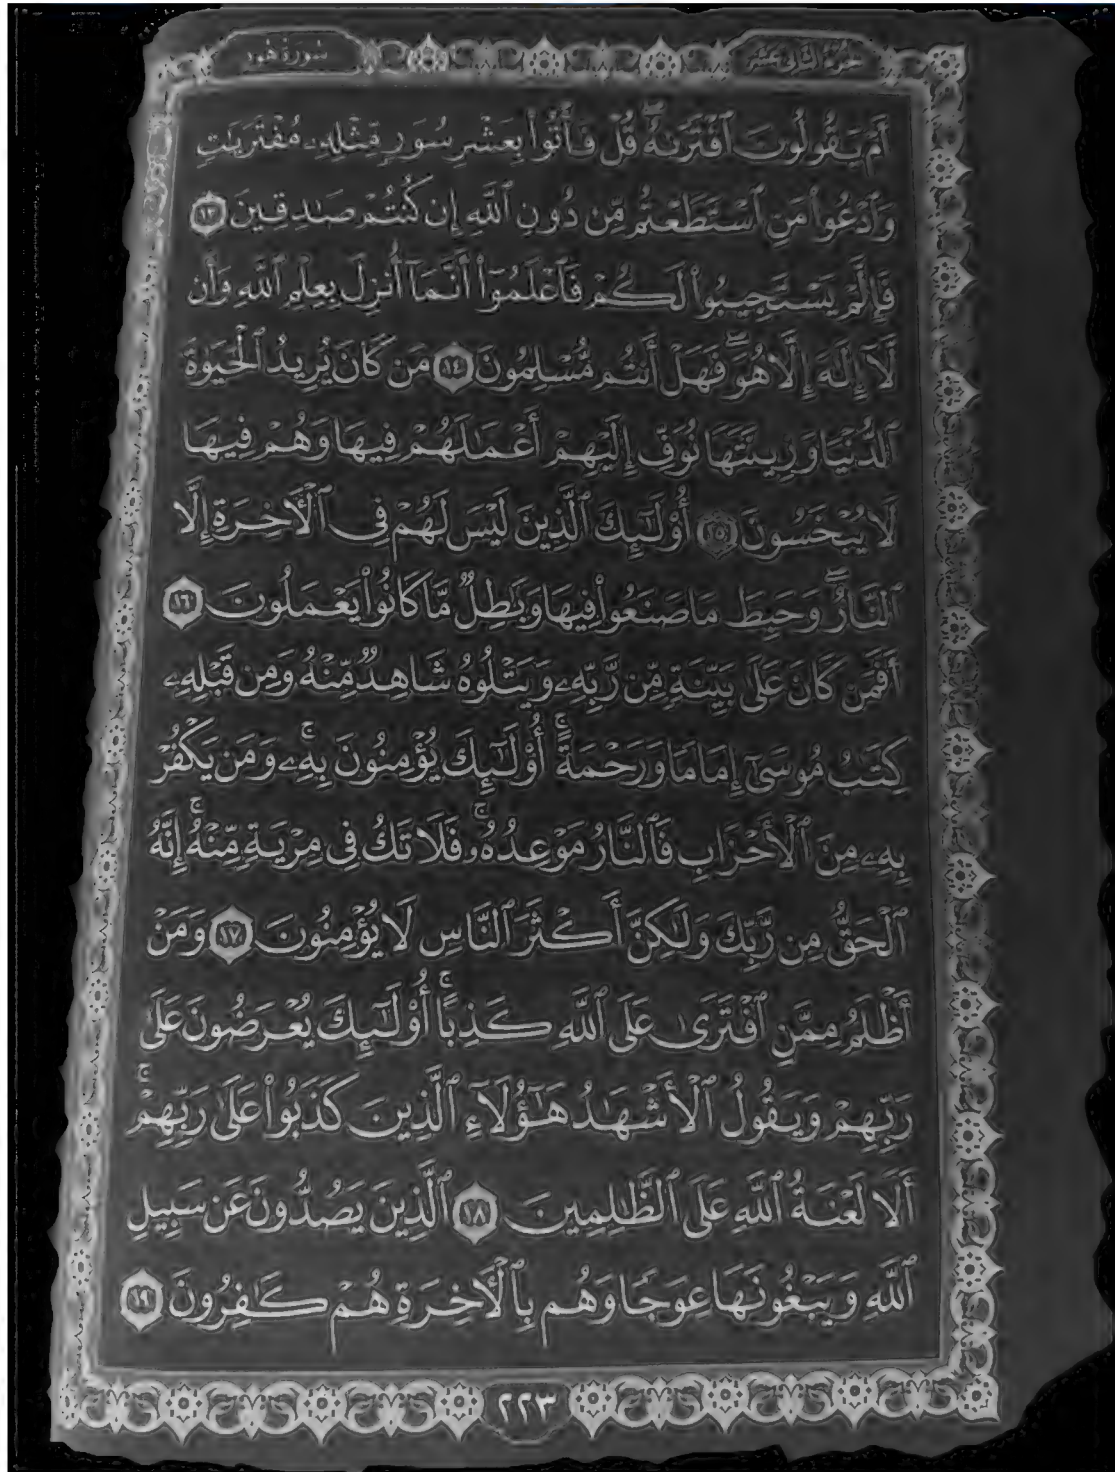 سُورَةُ هُود
الجُزْءُ الثَّانِي عَشَرَ
أَمۡ يَقُولُونَ ٱفۡتَرَىٰهُۖ قُلۡ فَأۡتُواْ بِعَشۡرِ سُوَرٖ مِّثۡلِهِۦ مُفۡتَرَيَٰتٖ
وَٱدۡعُواْ مَنِ ٱسۡتَطَعۡتُم مِّن دُونِ ٱللَّهِ إِن كُنتُمۡ صَٰدِقِينَ ١٣
فَإِلَّمۡ يَسۡتَجِيبُواْ لَكُمۡ فَٱعۡلَمُوٓاْ أَنَّمَآ أُنزِلَ بِعِلۡمِ ٱللَّهِ وَأَن
لَّآ إِلَٰهَ إِلَّا هُوَۖ فَهَلۡ أَنتُم مُّسۡلِمُونَ ١٤ مَن كَانَ يُرِيدُ ٱلۡحَيَوٰةَ
ٱلدُّنۡيَا وَزِينَتَهَا نُوَفِّ إِلَيۡهِمۡ أَعۡمَٰلَهُمۡ فِيهَا وَهُمۡ فِيهَا
لَا يُبۡخَسُونَ ١٥ أُوْلَٰٓئِكَ ٱلَّذِينَ لَيۡسَ لَهُمۡ فِي ٱلۡأٓخِرَةِ إِلَّا
ٱلنَّارُۖ وَحَبِطَ مَا صَنَعُواْ فِيهَا وَبَٰطِلٞ مَّا كَانُواْ يَعۡمَلُونَ ١٦
أَفَمَن كَانَ عَلَىٰ بَيِّنَةٖ مِّن رَّبِّهِۦ وَيَتۡلُوهُ شَاهِدٞ مِّنۡهُ وَمِن قَبۡلِهِۦ
كِتَٰبُ مُوسَىٰٓ إِمَامٗا وَرَحۡمَةًۚ أُوْلَٰٓئِكَ يُؤۡمِنُونَ بِهِۦۚ وَمَن يَكۡفُرۡ
بِهِۦ مِنَ ٱلۡأَحۡزَابِ فَٱلنَّارُ مَوۡعِدُهُۥۚ فَلَا تَكُ فِي مِرۡيَةٖ مِّنۡهُۚ إِنَّهُ
ٱلۡحَقُّ مِن رَّبِّكَ وَلَٰكِنَّ أَكۡثَرَ ٱلنَّاسِ لَا يُؤۡمِنُونَ ١٧ وَمَنۡ
أَظۡلَمُ مِمَّنِ ٱفۡتَرَىٰ عَلَى ٱللَّهِ كَذِبًاۚ أُوْلَٰٓئِكَ يُعۡرَضُونَ عَلَىٰ
رَبِّهِمۡ وَيَقُولُ ٱلۡأَشۡهَٰدُ هَٰٓؤُلَآءِ ٱلَّذِينَ كَذَبُواْ عَلَىٰ رَبِّهِمۡۚ
أَلَا لَعۡنَةُ ٱللَّهِ عَلَى ٱلظَّٰلِمِينَ ١٨ ٱلَّذِينَ يَصُدُّونَ عَن سَبِيلِ
ٱللَّهِ وَيَبۡغُونَهَا عِوَجٗا وَهُم بِٱلۡأٓخِرَةِ هُمۡ كَٰفِرُونَ ١٩
٢٢٣